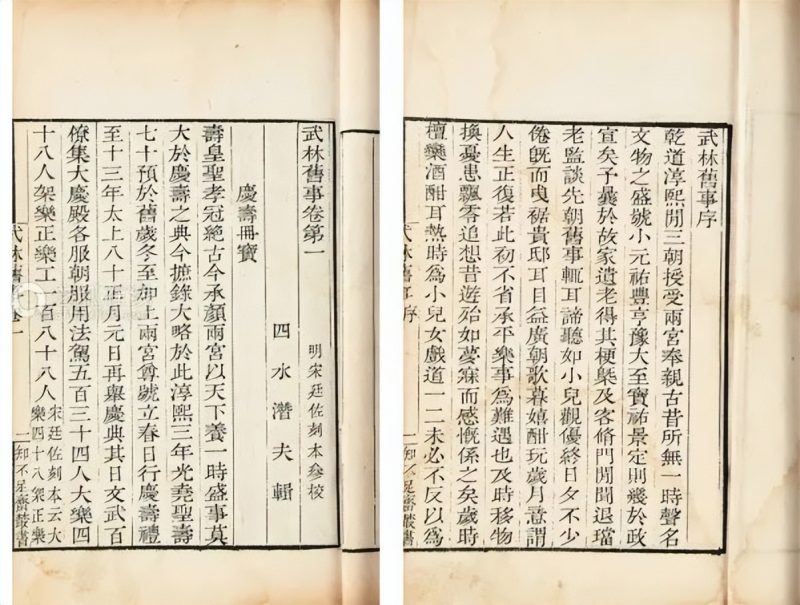 武林舊事序
乾道淳熙間三朝授受兩宮奉親古昔所無一時聲名
文物之盛號小元祐豐亨豫大至寶祐景定則幾於政
宣矣予曩於故家遺老得其梗槩及客脩門閒聞退璫
老監談先朝舊事輒耳諦聽如小兒觀優終日夕不少
倦旣而曳裾貴邸耳目益廣朝歌暮嬉酣玩歲月意謂
人生正復若此初不省承平樂事為難遇也及時移物
換憂患飄零追想昔遊殆如夢寐而感慨係之矣歲時
檀欒酒酣耳熱時為小兒女戲道一二未必不反以為
武林舊事序
一
知不足齋叢書
武林舊事卷第一
明宋廷佐刻本參校
四水潛夫輯
慶壽冊寶
壽皇聖孝冠絕古今承顏兩宮以天下養一時盛事莫
大於慶壽之典今摭錄大略於此淳熙三年光堯聖壽
七十預於舊歲冬至加上兩宮尊號立春日行慶壽禮
至十三年太上八十正月元日再舉慶典其日文武百
僚集大慶殿各服朝服用法駕五百三十四人大樂四
十八人架樂正樂工一百八十八人宋廷佐刻本云大
樂四十八架正樂
武林舊事卷一
一
知不足齋叢書